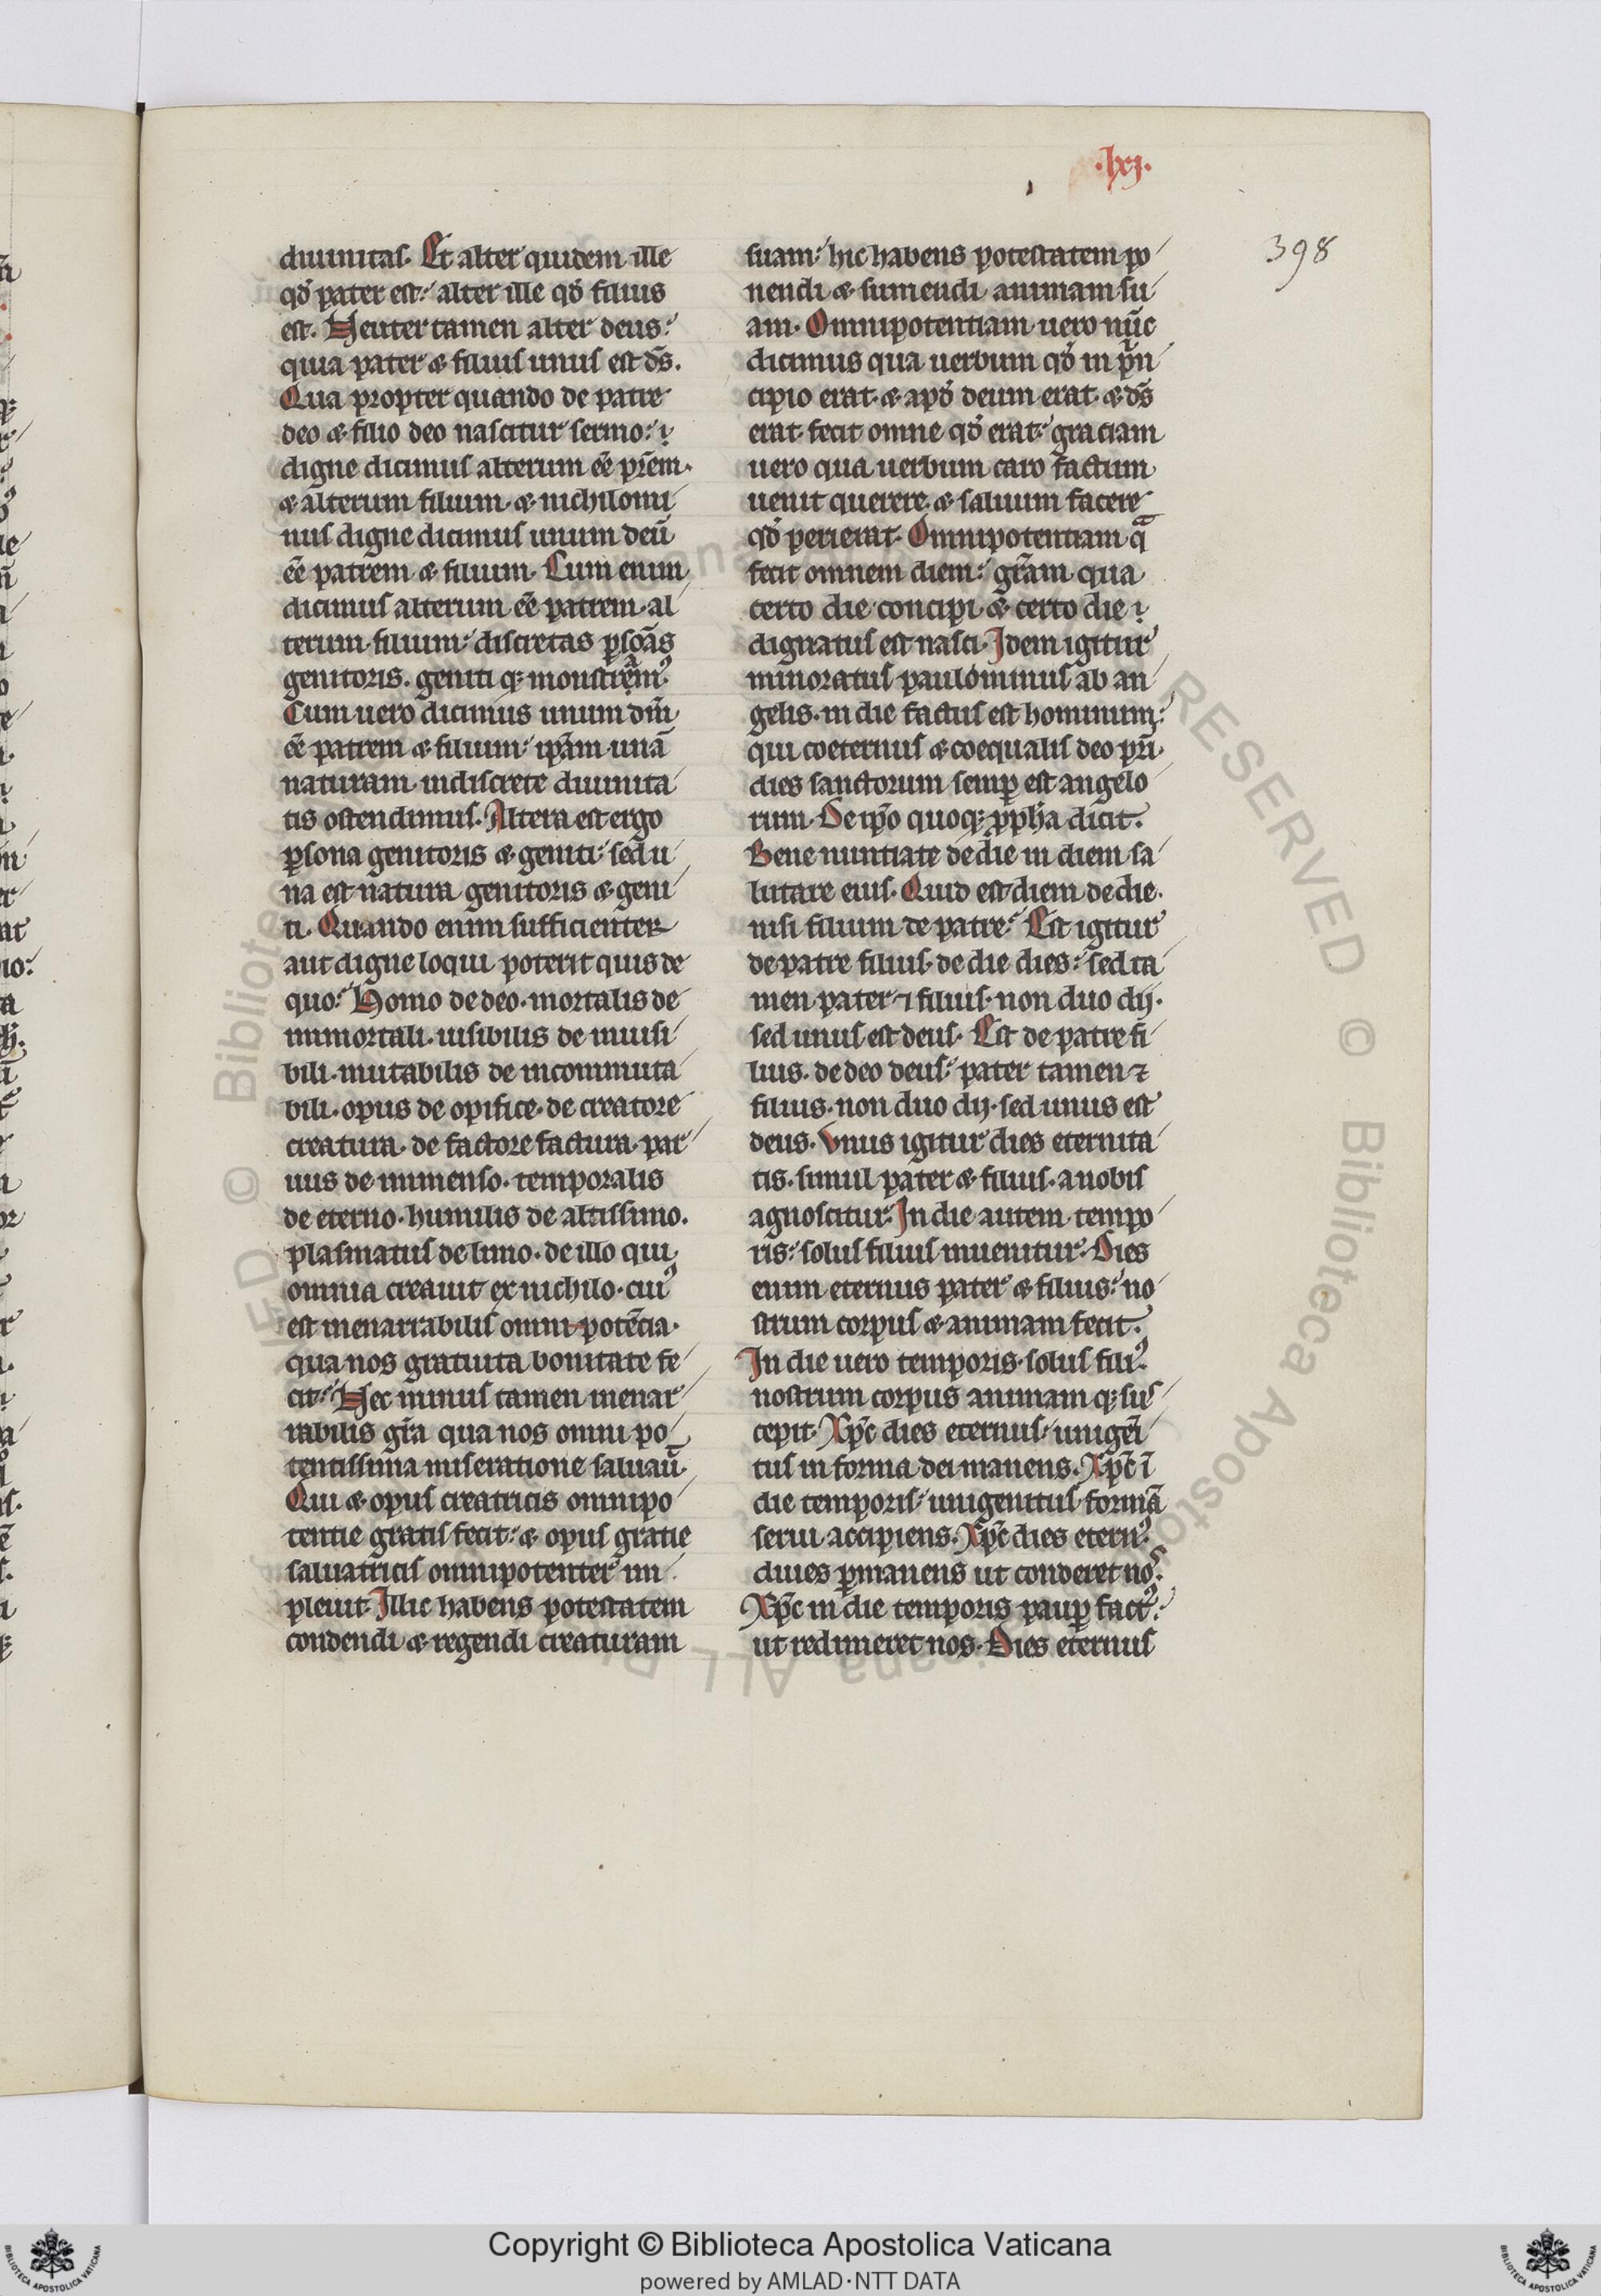 .lxj.
398
diuinitas. Et alter quidem ille
qđ pater est: alter ille qđ filius
est. Neuter tamen alter deus:
quia pater & filius unus est ds̄.
Qua propter quando de patre
deo & filio deo nascitur sermo:
digne dicimus alterum eē prēm.
& alterum filium. & nichilomi
nus digne dicimus unum deū
eē patrem & filium. Cum enim
dicimus alterum eē patrem. al
terum filium: discretas ꝑsoās
genitoris. geniti qꝫ monstramꝰ.
Cum uero dicimus unum dm̄
eē patrem & filium: ip̄am unā
naturam indiscrete diuinita
tis ostendimus. Altera est ergo
ꝑsona genitoris & geniti: sed u
na est natura genitoris & geni
ti. Quando enim sufficienter
aut digne loqui poterit quis de
quo: Homo de deo. mortalis de
immortali. uisibilis de inuisi
bili. mutabilis de incommuta
bili. opus de opifice. de creatore
creatura. de factore factura. par
uus de immenso. temporalis
de eterno. humilis de altissimo.
plasmatus de limo. de illo qui
omnia creauit ex nichilo. cuiꝰ
est inenarrabilis omnipotēcia.
qua nos gratuita bonitate fe
cit: Nec minus tamen inenar
rabilis gr̄a qua nos omni po
tentissima miseratione saluauū.
Qui & opus creatricis omnipo
tentie gratis fecit: & opus gratie
saluatricis omnipotenter im
pleuit. Illic habens potestatem
condendi & regendi creaturam
suam: hic habens potestatem po
nendi & sumendi animam su
am. Omnipotentiam uero nūc
dicimus qua uerbum qđ in pn
cipio erat. & apđ deum erat. & ds̄
erat. fecit omne qđ erat: graciam
uero qua uerbum caro factum
uenit querere. & saluum facere
qđ perierat. Omnipotentiam qa
fecit omnem diem: gr̄am qua
certo die concipi. & certo die
dignatus est nasci. Idem igitur
minoratus paulominus ab an
gelis. in die factus est hominum:
qui coeternus & coequalis deo pr̄i.
dies sanctorum semꝑ est angelo
rum. De ip̄o quoqꝫ ꝓph̄a dicit.
Bene nuntiate de die in diem sa
lutare eius. Quid est diem de die.
nisi filium de patre: Est igitur
de patre filius. de die dies: sed ta
men pater ⁊ filius. non duo dij.
sed unus est deus. Est de patre fi
lius. de deo deus: pater tamen ⁊
filius. non duo dij. sed unus est
deus. Vnus igitur dies eternita
tis. simul pater & filius. a nobis
agnoscitur. In die autem tempo
ris: solus filius inuenitur. Dies
enim eternus pater & filius: no
strum corpus & animam fecit.
In die uero temporis. solus filiꝰ.
nostrum corpus animam qꝫ sus
cepit. Xp̄c dies eternus: unigēi
tus in forma dei manens. Xp̄c ī
die temporis: unigenitus formā
serui accipiens. Xp̄c dies eternꝰ.
diues ꝑmanens ut conderet nos.
Xp̄c in die temporis pauꝑ factꝰ:
ut redimeret nos. Dies eternus
Copyright © Biblioteca Apostolica Vaticana
powered by AMLAD·NTT DATA